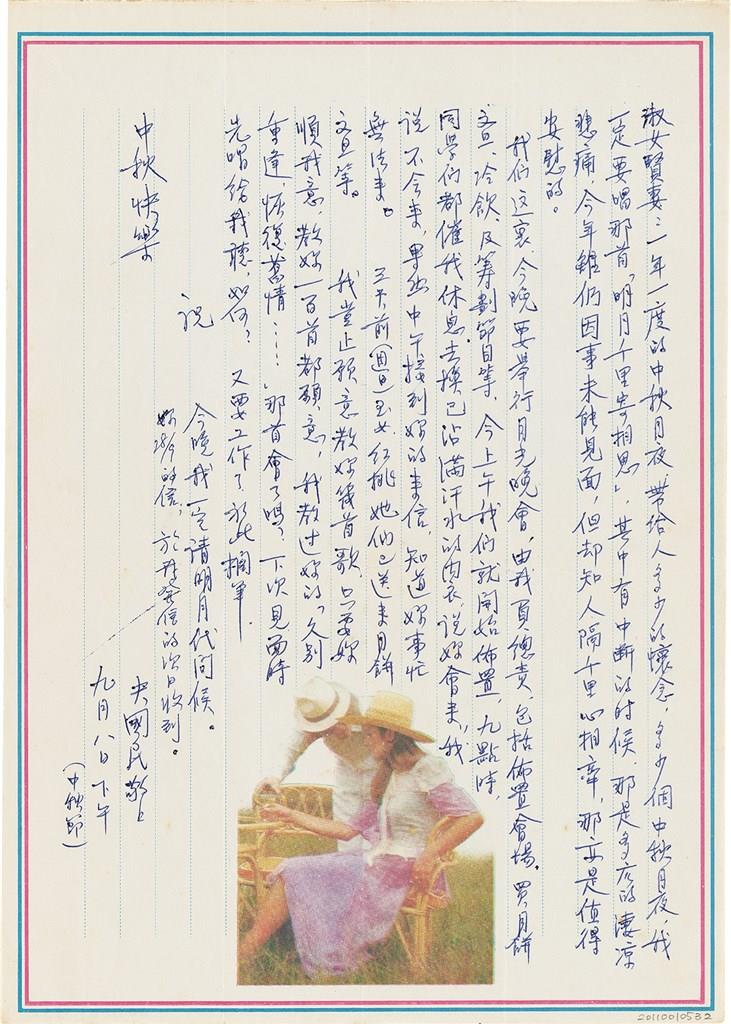 淑女賢妻：一年一度的中秋月夜帶給人多少的懷念，多少個中秋月夜，我
一定要唱那首「明月千里寄相思」，其中有中斷的時候，那是多麼的淒涼
悲痛，今年雖仍因事未能見面，但却知人隔千里心相牽，那亦是值得
安慰的。
我們這裏今晚要舉行月光晚會，由我負總責，包括佈置會場，買月餅
文旦、冷飲及籌劃節目等，今上午我們就開始佈置，九點時，
同學們都催我休息，去換已沾滿汗水的內衣，說妳會來，我
說不會來，果然中午接到妳的來信，知道妳事忙
無法來。三天前（週日）玉女、紅桃她們已送來月餅
文旦等。我豈止願意教妳幾首歌，只要妳
順我意，教妳一百首都願意，我教过妳的「久別
重逢，恢復舊情……」那首會了嗎？下次見面時
先唱給我聽，如何？又要工作了，於此擱筆.
今晚我一定請明月代問候。
妳28/9的信，於發信的次日收到。
祝
中秋快樂
夫國民敬上
九月八日下午
（中秋節）
20110010532